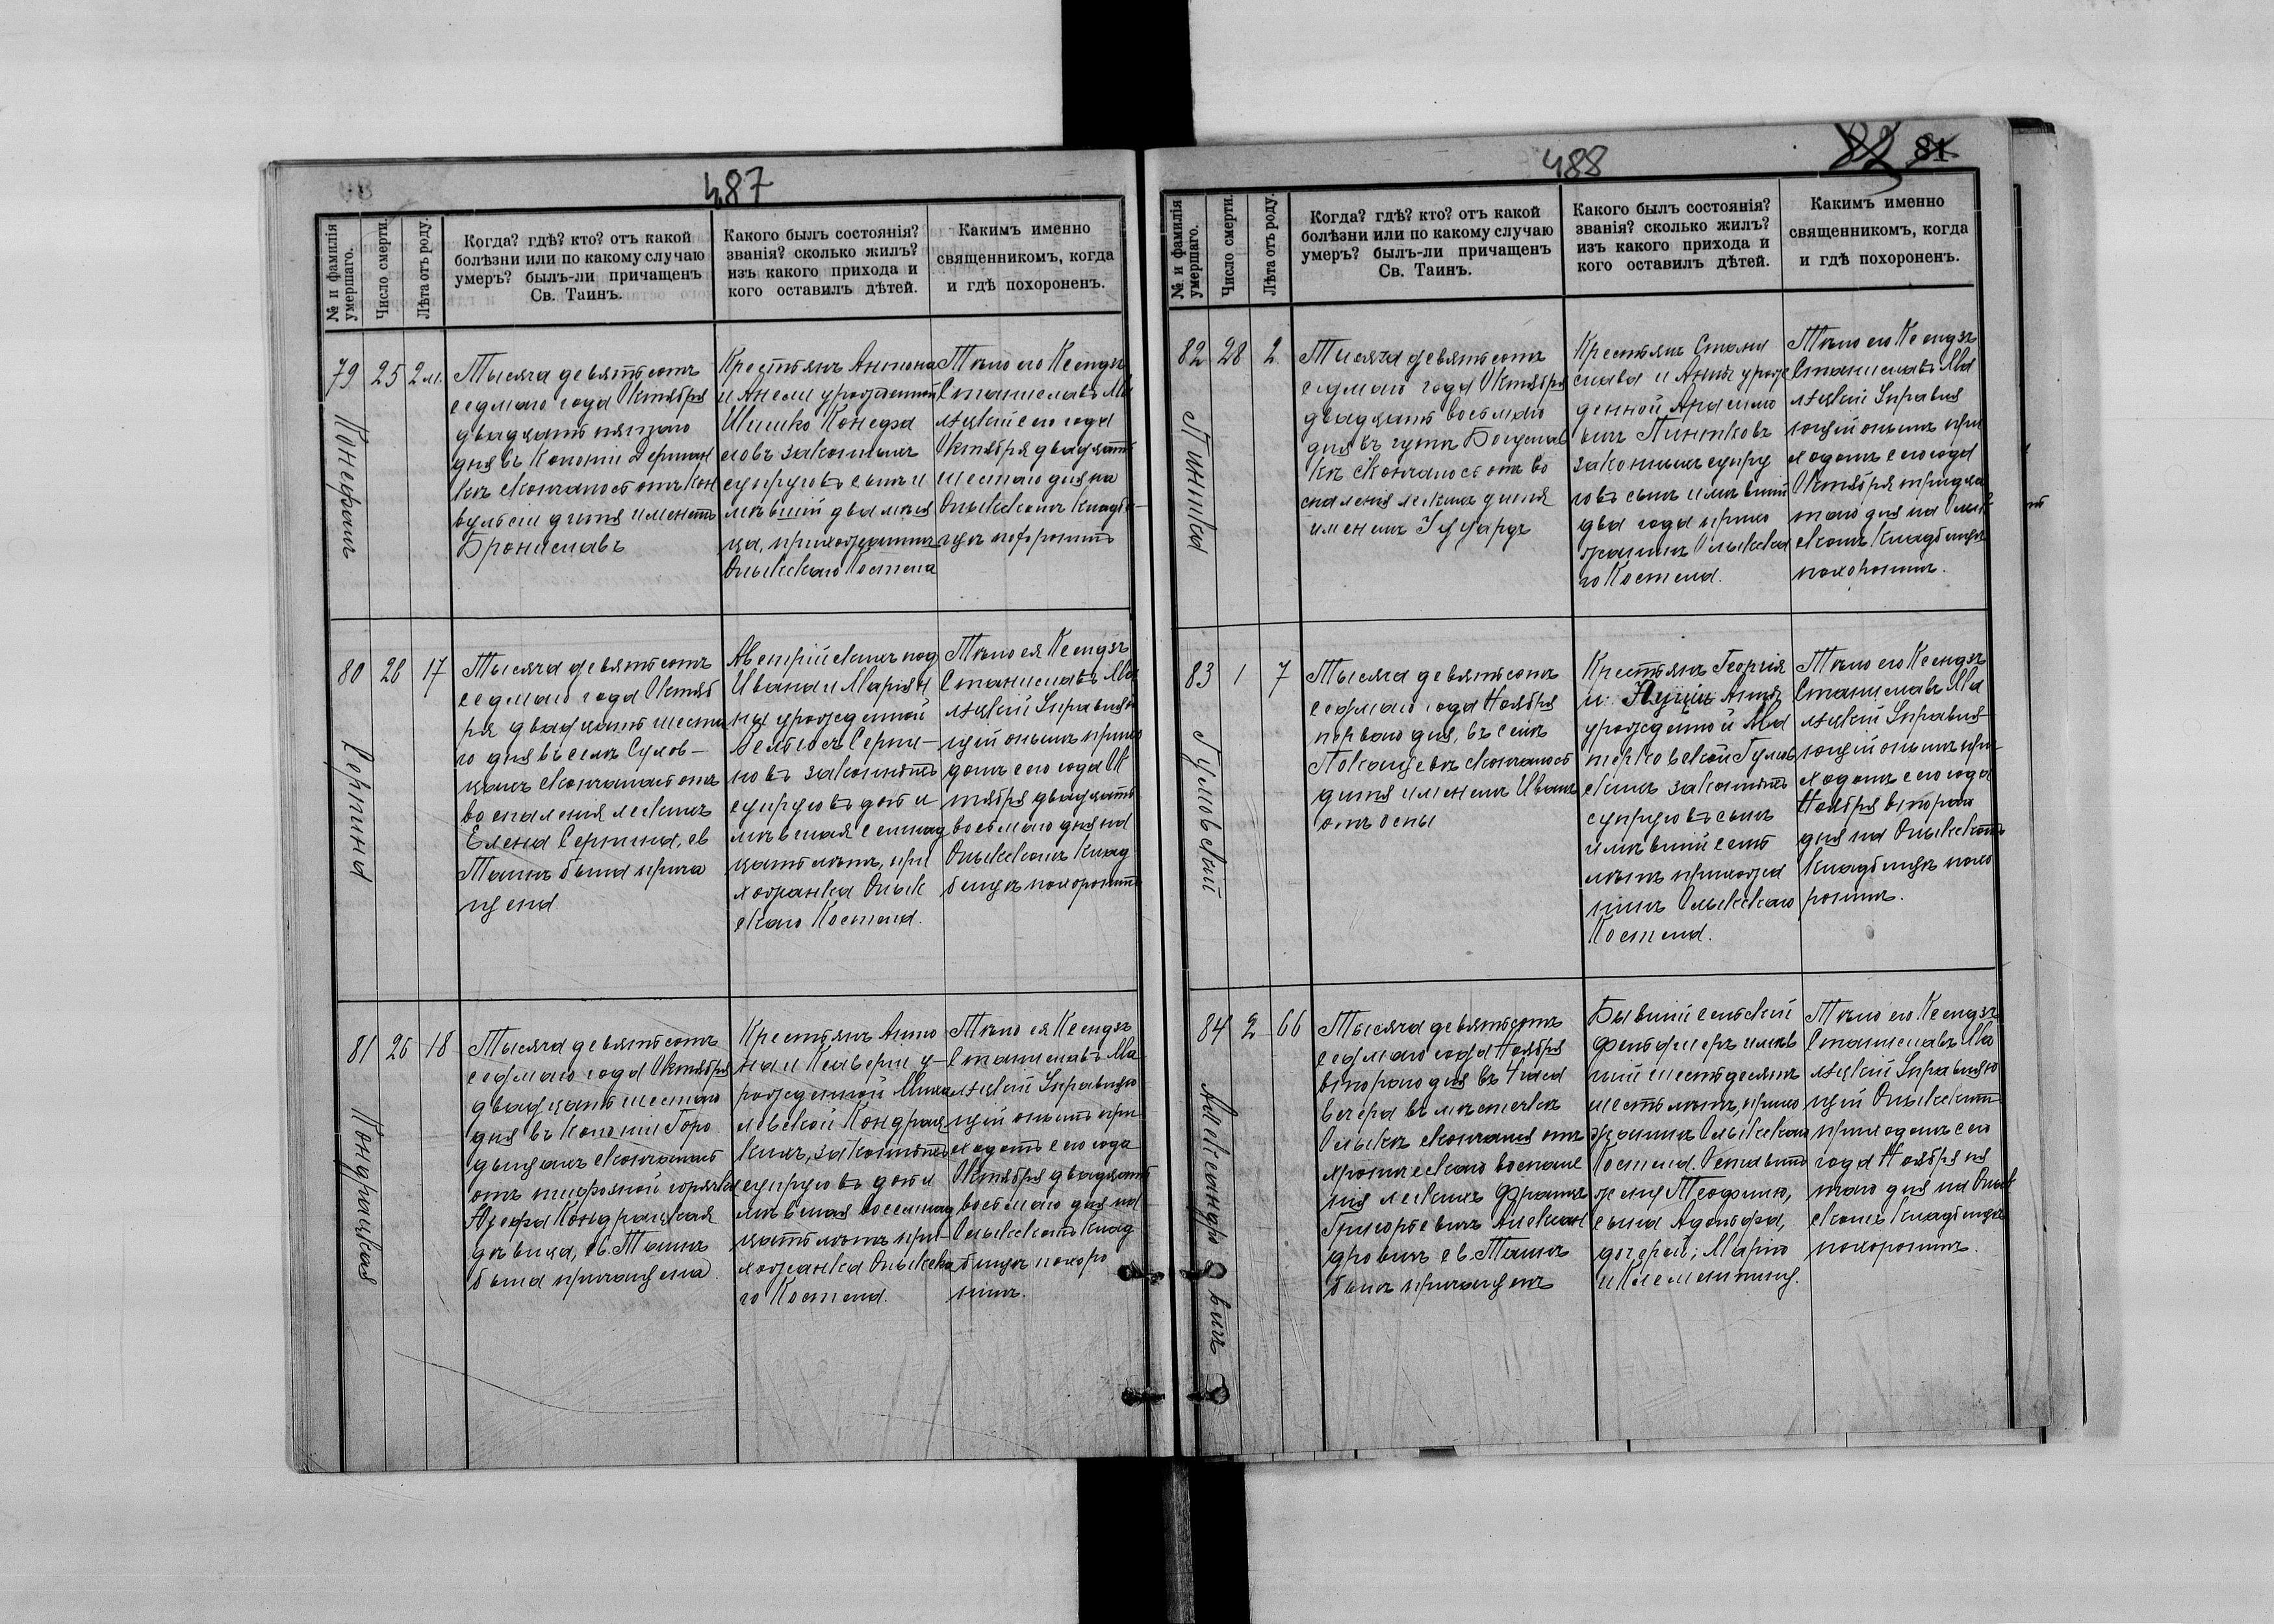 487
№ и фамилія умершаго.
Число смерти.
Лѣта отъ роду.
Когда? гдѣ? кто? отъ какой
болѣзни или по какому случаю
умеръ? былъ-ли причащенъ
Св. Таинъ.
Какого былъ состоянія?
званія? сколько жилъ?
изъ какого прихода и
кого оставилъ дѣтей.
Какимъ именно
священникомъ, когда
и гдѣ похороненъ.
79
25
2 м.
Тысяча девятьсотъ
седмаго года Октября
двадцать пятаго
дня въ Колоніи Держан
кѣ скончалось отъ кон
вульсіи дитя именемъ
Брониславъ
Крестьянъ Антона
и Анели урожденной
Шишко
законныхъ
супруговъ сынъ и
мѣвшій два мѣся
ца, прихожанинъ
Олыкскаго Костела
Тѣло его Ксендзъ
Станиславъ Ма
лецкій сего года
Октября двадцать
шестаго дня на
Олыкскомъ кладби
щѣ похоронилъ
80
26
17
Серпина
Тысяча девятьсотъ
седмаго года Октяб
ря двадцать шеста
го дня въ селѣ Сулов-
цахъ скончалась отъ
воспаленія легкихъ
Елена Серпина, св
Таинъ была прича
щена
Австрійскихъ под
Ивана и Маріян
ны урожденной
Серпи-
новъ законныхъ
супруговъ дочь и
мѣвшая семнад
цать лѣтъ, при
хожанка Олык
скаго Костела.
Тѣло ея Ксендзъ
Станиславъ Ма
лецкій Управляю
щій онымъ прихо
домъ сего года Ок
тября двадцать
восьмаго дня на
Олыкскомъ Клад
бищѣ похоронилъ
81
26
18
Кондрацкая
Тысяча девятьсотъ
седмаго года Октября
двадцать шестаго
дня въ Колоніи Горо
дищахъ скончалась
отъ тифозной горячки
Юзефа Кондрацкая
дѣвица, св. Таинъ
была причащена.
Крестьянъ Анто
на и Ксаверіи у-
рожденной Миха
левской Кондрац
кихъ, законныхъ
супруговъ дочь и
мѣвшая восемнад
цать лѣтъ при-
хожанка Олыкска
го Костела.
Тѣло ея Ксендзъ
Станиславъ Ма
лецкій Управляю
щій онымъ при
ходомъ сего года
Октября двадцать
восьмаго дня на
Олыкскомъ Клад
бищѣ похоро
нилъ.
488
82 81
№ и фамилія умершаго.
Число смерти.
Лѣта отъ роду.
Когда? гдѣ? кто? отъ какой
болѣзни или по какому случаю
умеръ? былъ-ли причащенъ
Св. Таинъ.
Какого былъ состоянія?
званія? сколько жилъ?
изъ какого прихода и
кого оставилъ дѣтей.
Какимъ именно
священникомъ, когда
и гдѣ похороненъ.
82
28
2
Пинтка
Тысяча девятьсотъ
седмаго года Октября
двадцать восьмаго
дня въ Богуслав
кѣ скончалось отъ во
спаленія легкихъ дитя
именемъ
Крестьянъ Стани
слава и Анны урож
денной
Пинтковъ
законныхъ супру
говъ сынъ имѣвшій
два года прихо
жанинъ Олыкска
го Костела.
Тѣло его Ксендзъ
Станиславъ Ма
лецкій Управля
ющій онымъ при
ходомъ сего года
Октября тридца
таго дня на Олык
скомъ Кладбищѣ
похоронилъ.
83
1
7
Гульовскій
Тысяча девятьсотъ
седмаго года Ноября
перваго дня, въ селѣ
Покащевѣ скончалось
дитя именемъ Иванъ
отъ оспы
Крестьянъ Георгія
и Анны
урожденной Ма
терковской Гулов
скихъ законныхъ
супруговъ сынъ
имѣвшій семь
лѣтъ прихожа
нинъ Олыкскаго
Костела.
Тѣло его Ксендзъ
Станиславъ Ма
лецкій Управля-
ющій онымъ при-
ходомъ сего года
Ноября втораго
дня на Олыкскомъ
Кладбищѣ похо
ронилъ.
84
2
66
Александровичъ
Тысяча девятьсотъ
седмаго года Ноября
втораго дня въ 4 часа
вечера въ мѣстечкѣ
Олыкѣ скончался отъ
хроническаго воспале
нія легкихъ Францъ
Григорьевичъ Алексан
дровичъ св. Таинъ
былъ причащенъ
Бывшій сельскій
фельдшеръ имѣв
шій шестьдесятъ
шесть лѣтъ, прихо
жанинъ Олыкскаго
Костела. Оставилъ
жену Теофилю,
сына Адольфа,
дочерей; Марію
и Клементину.
Тѣло его Ксендзъ
Станиславъ Ма
лецкій Управляю
щій Олыкскимъ
приходомъ сего
года Ноября пя
таго дня на Олык
скомъ Кладбищѣ
похоронилъ.